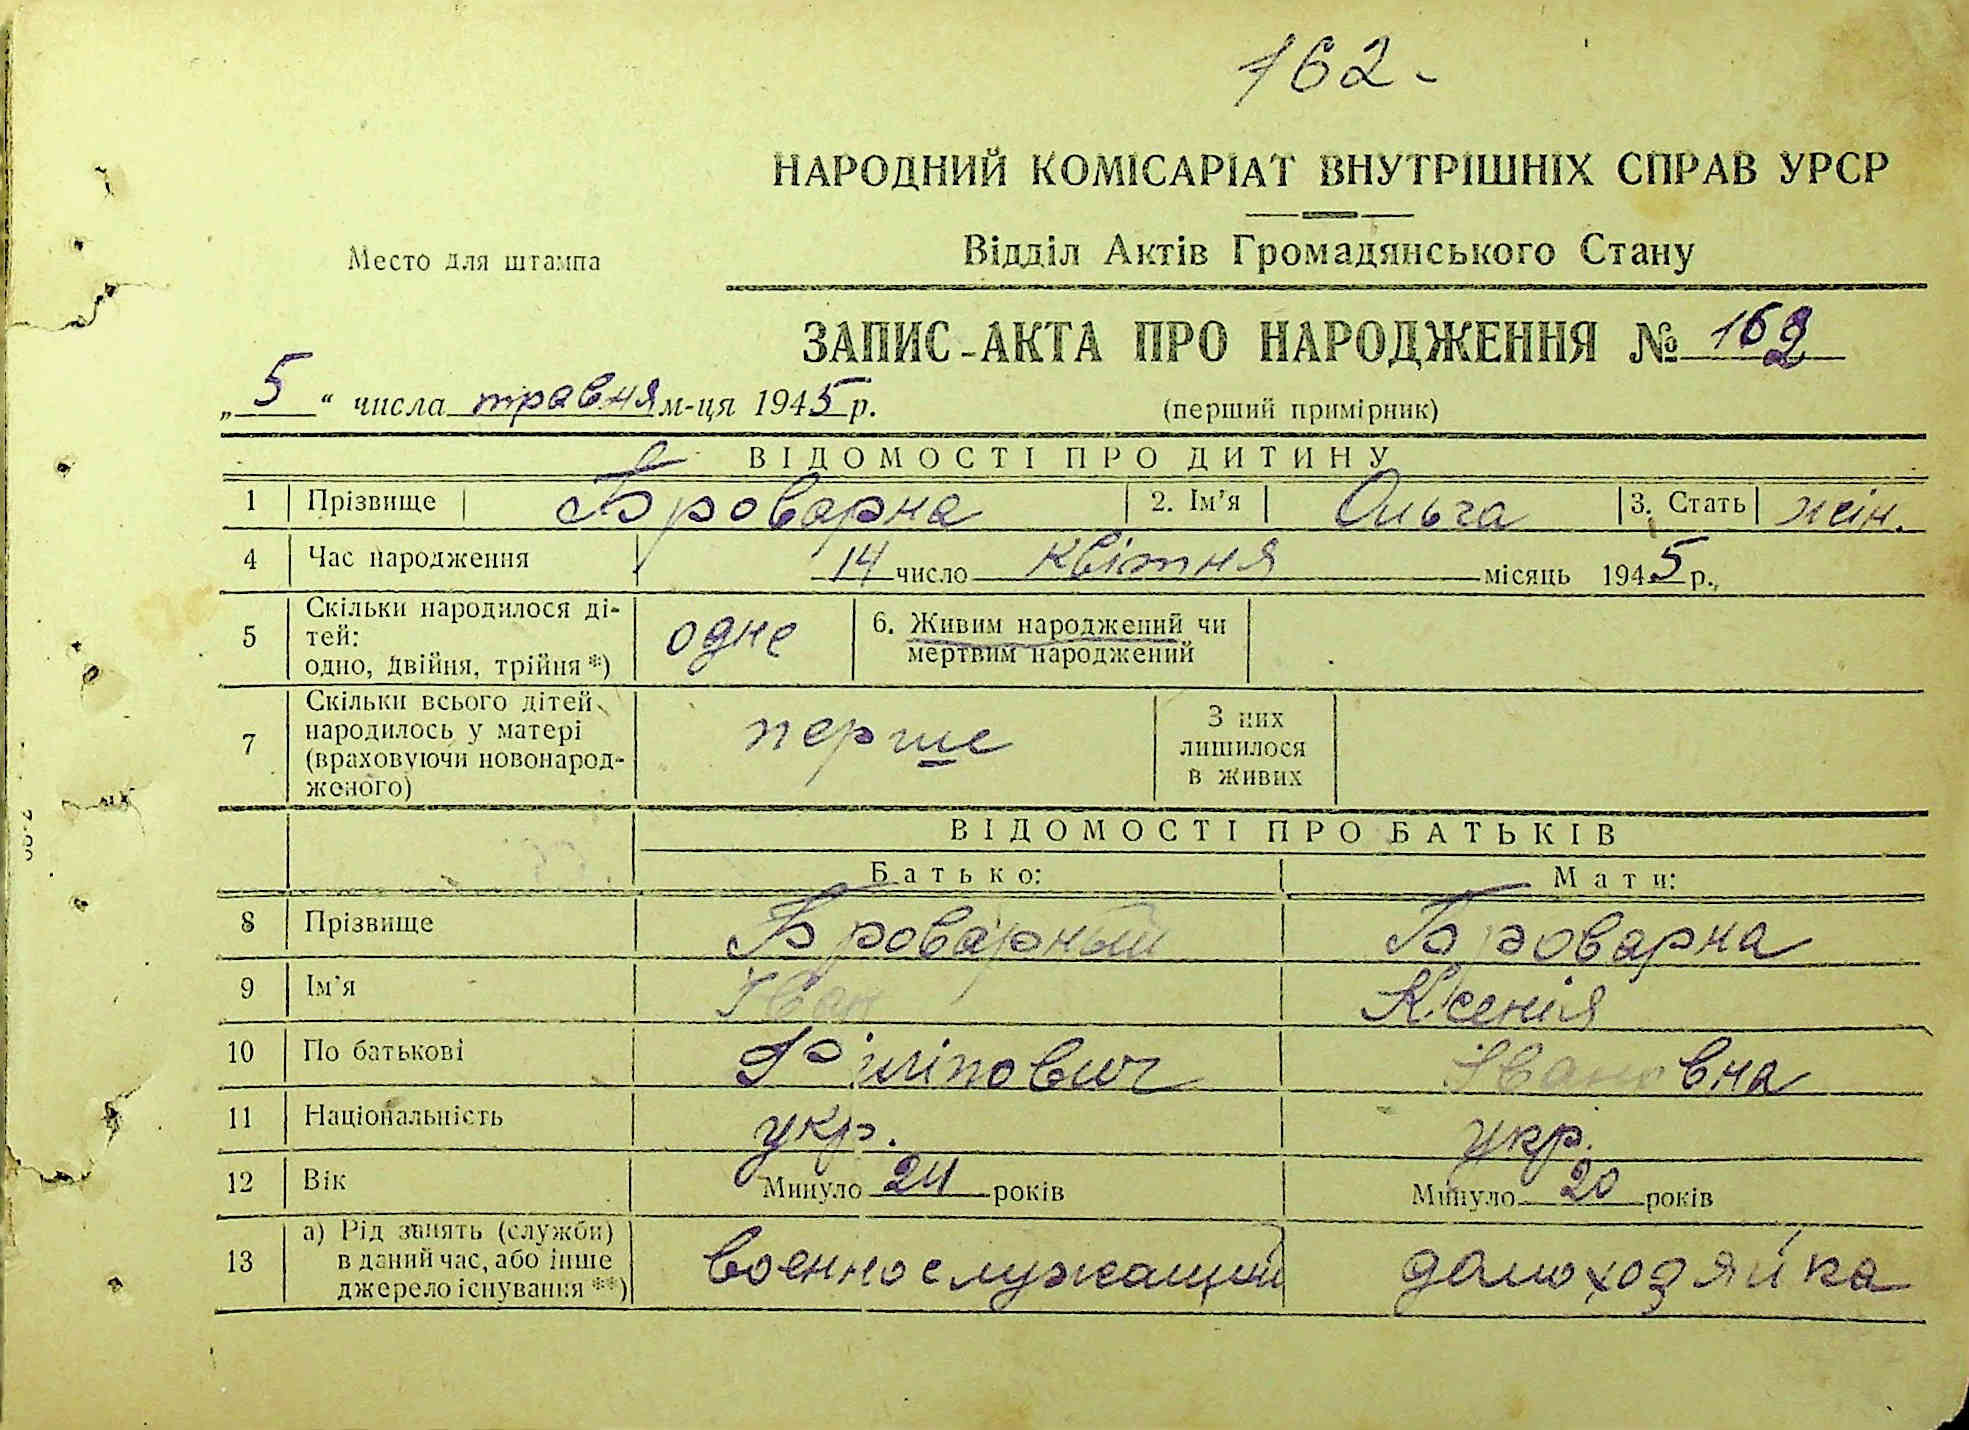 162-
НАРОДНИЙ КОМІСАРІАТ ВНУТРІШНІХ СПРАВ УРСР
Место для штампа
Відділ Актів Громадянського Стану
ЗАПИС-АКТА ПРО НАРОДЖЕННЯ № 162
„5“ числа травня м-ця 1945 р.
(перший примірник)
ВІДОМОСТІ ПРО ДИТИНУ
1 Прізвище Броварна 2. Ім'я Ольга 3. Стать жін.
4 Час народження 14 число квітня місяць 1945 р.
5 Скільки народилося ді-
тей:
одно, двійня, трійня *) одне
6. Живим народжений чи
мертвим народжений
7 Скільки всього дітей
народилось у матері
(враховуючи новонарод-
женого) перше
З них
лишилося
в живих
ВІДОМОСТІ ПРО БАТЬКІВ
Батько: Мати:
8 Прізвище Броварный Броварна
9 Ім'я Іван Ксенія
10 По батькові Філіпович Івановна
11 Національність укр. укр.
12 Вік Минуло 24 років Минуло 20 років
13 а) Рід занять (служби)
в даний час, або інше
джерело існування **) военнослужащий домохозяйка